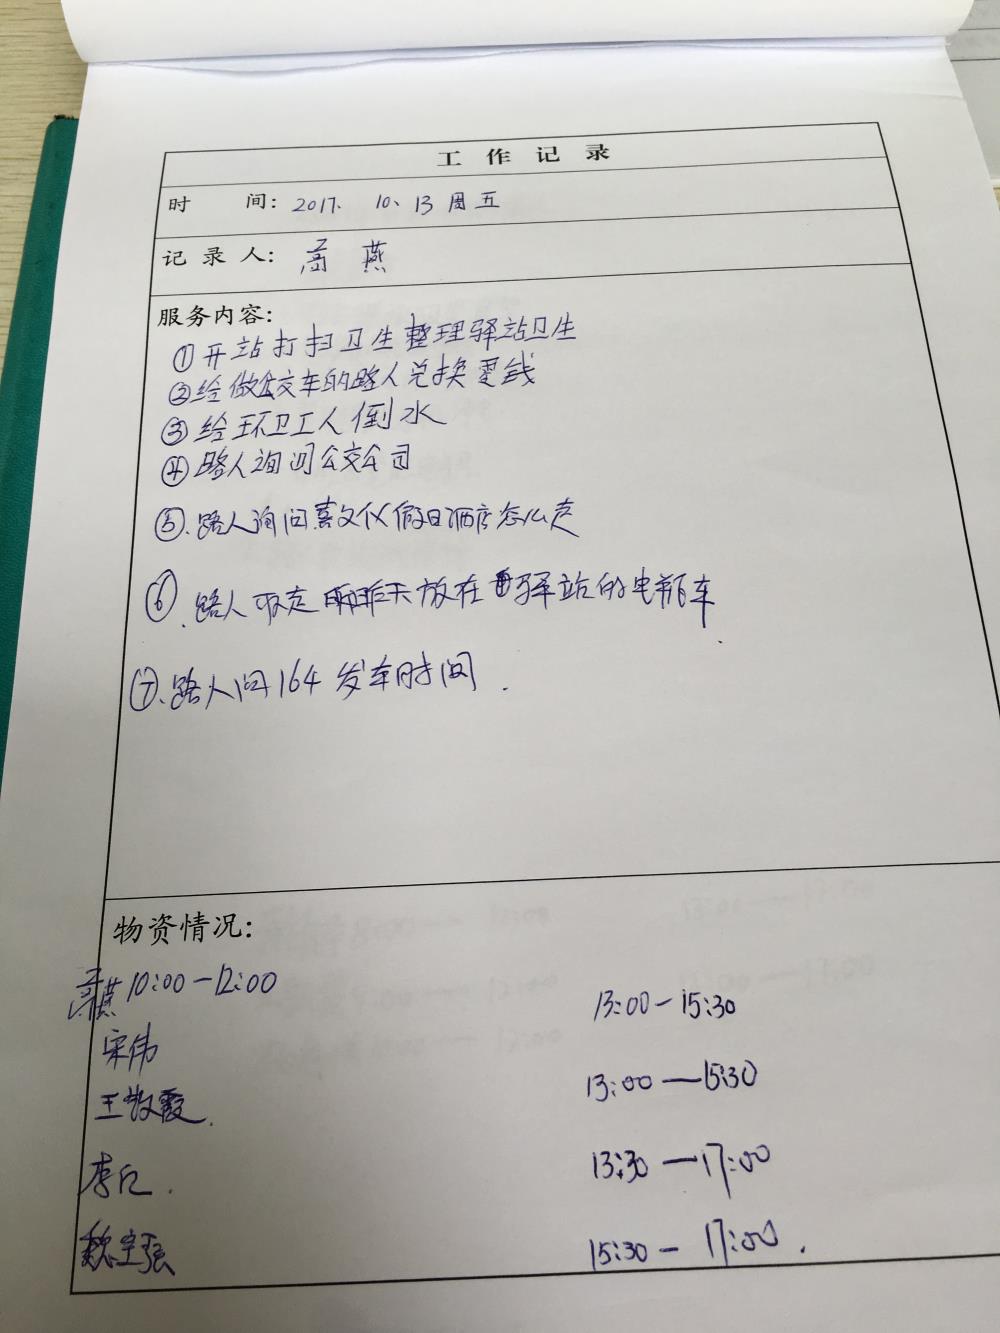 工作记录
时 间: 2017. 10、13 周五
记录人: 高燕
服务内容:
①开站打扫卫生整理驿站卫生
②给做公交车的路人兑换零钱
③给环卫工人倒水
④路人询问公交公司
⑤.路人询问 假日酒店怎么走
⑥.路人取走 昨天放在 驿站的电瓶车.
⑦.路人问164发车时间.
物资情况:
高燕 10:00—12:00 13:00—15:30
宋伟 13:00—15:30
王敬霞. 13:30—17:00
李 . 15:30—17:00.
魏宝强